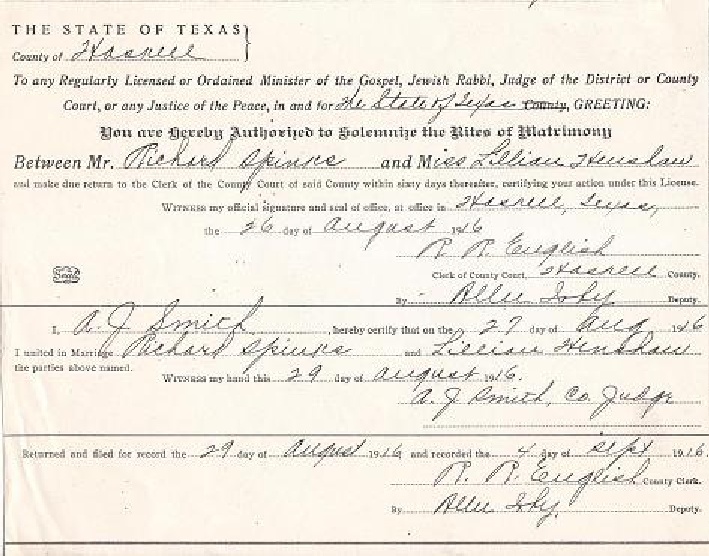 THE STATE OF TEXAS
County of Haskell
To any Regularly Licensed or Ordained Minister of the Gospel, Jewish Rabbi, Judge of the District or County
Court, or any Justice of the Peace, in and for The State of Texas County, GREETING:
You are Hereby Authorized to Solemnize the Rites of Matrimony
Between Mr. Richard Spinks and Miss Lillian Henshaw
and make due return to the Clerk of the County Court of said County within sixty days thereafter, certifying your action under this License.
WITNESS my official signature and seal of office, at office in Haskell, Texas,
the 26 day of August 1916
R. R. English
Seal
Clerk of County Court, Haskell County.
By Allie Irby Deputy.
I, A. J. Smith, hereby certify that on the 27 day of Aug 1916
I united in Marriage Richard Spinks and Lillian Henshaw
the parties above named.
WITNESS my hand this 29 day of August 1916.
A. J. Smith, Co. Judge
Returned and filed for record the 29 day of August 1916, and recorded the 4 day of Sept 1916.
R. R. English County Clerk.
By Allie Irby, Deputy.